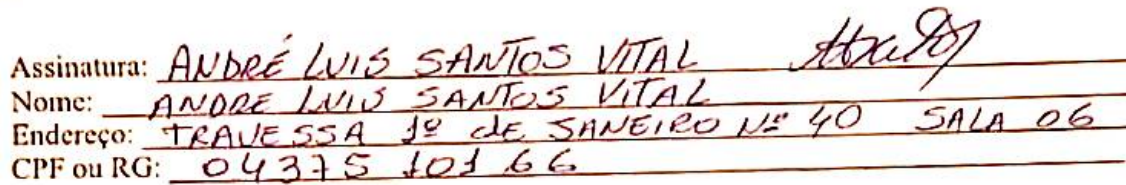 Assinatura: ANDRÉ LUIS SANTOS VITAL
Nome: ANDRE LUIS SANTOS VITAL
Endereço: TRAVESSA 1º de JANEIRO Nº 40 SALA 06
CPF ou RG: 04375 101 66